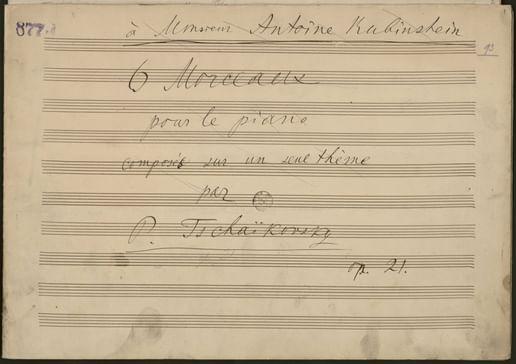 877.
à Monsieur Antoine Rubinstein
93
6 Morceaux
pour le piano
composés sur un seul thème
par
P. Tschaïkovsky
op. 21.